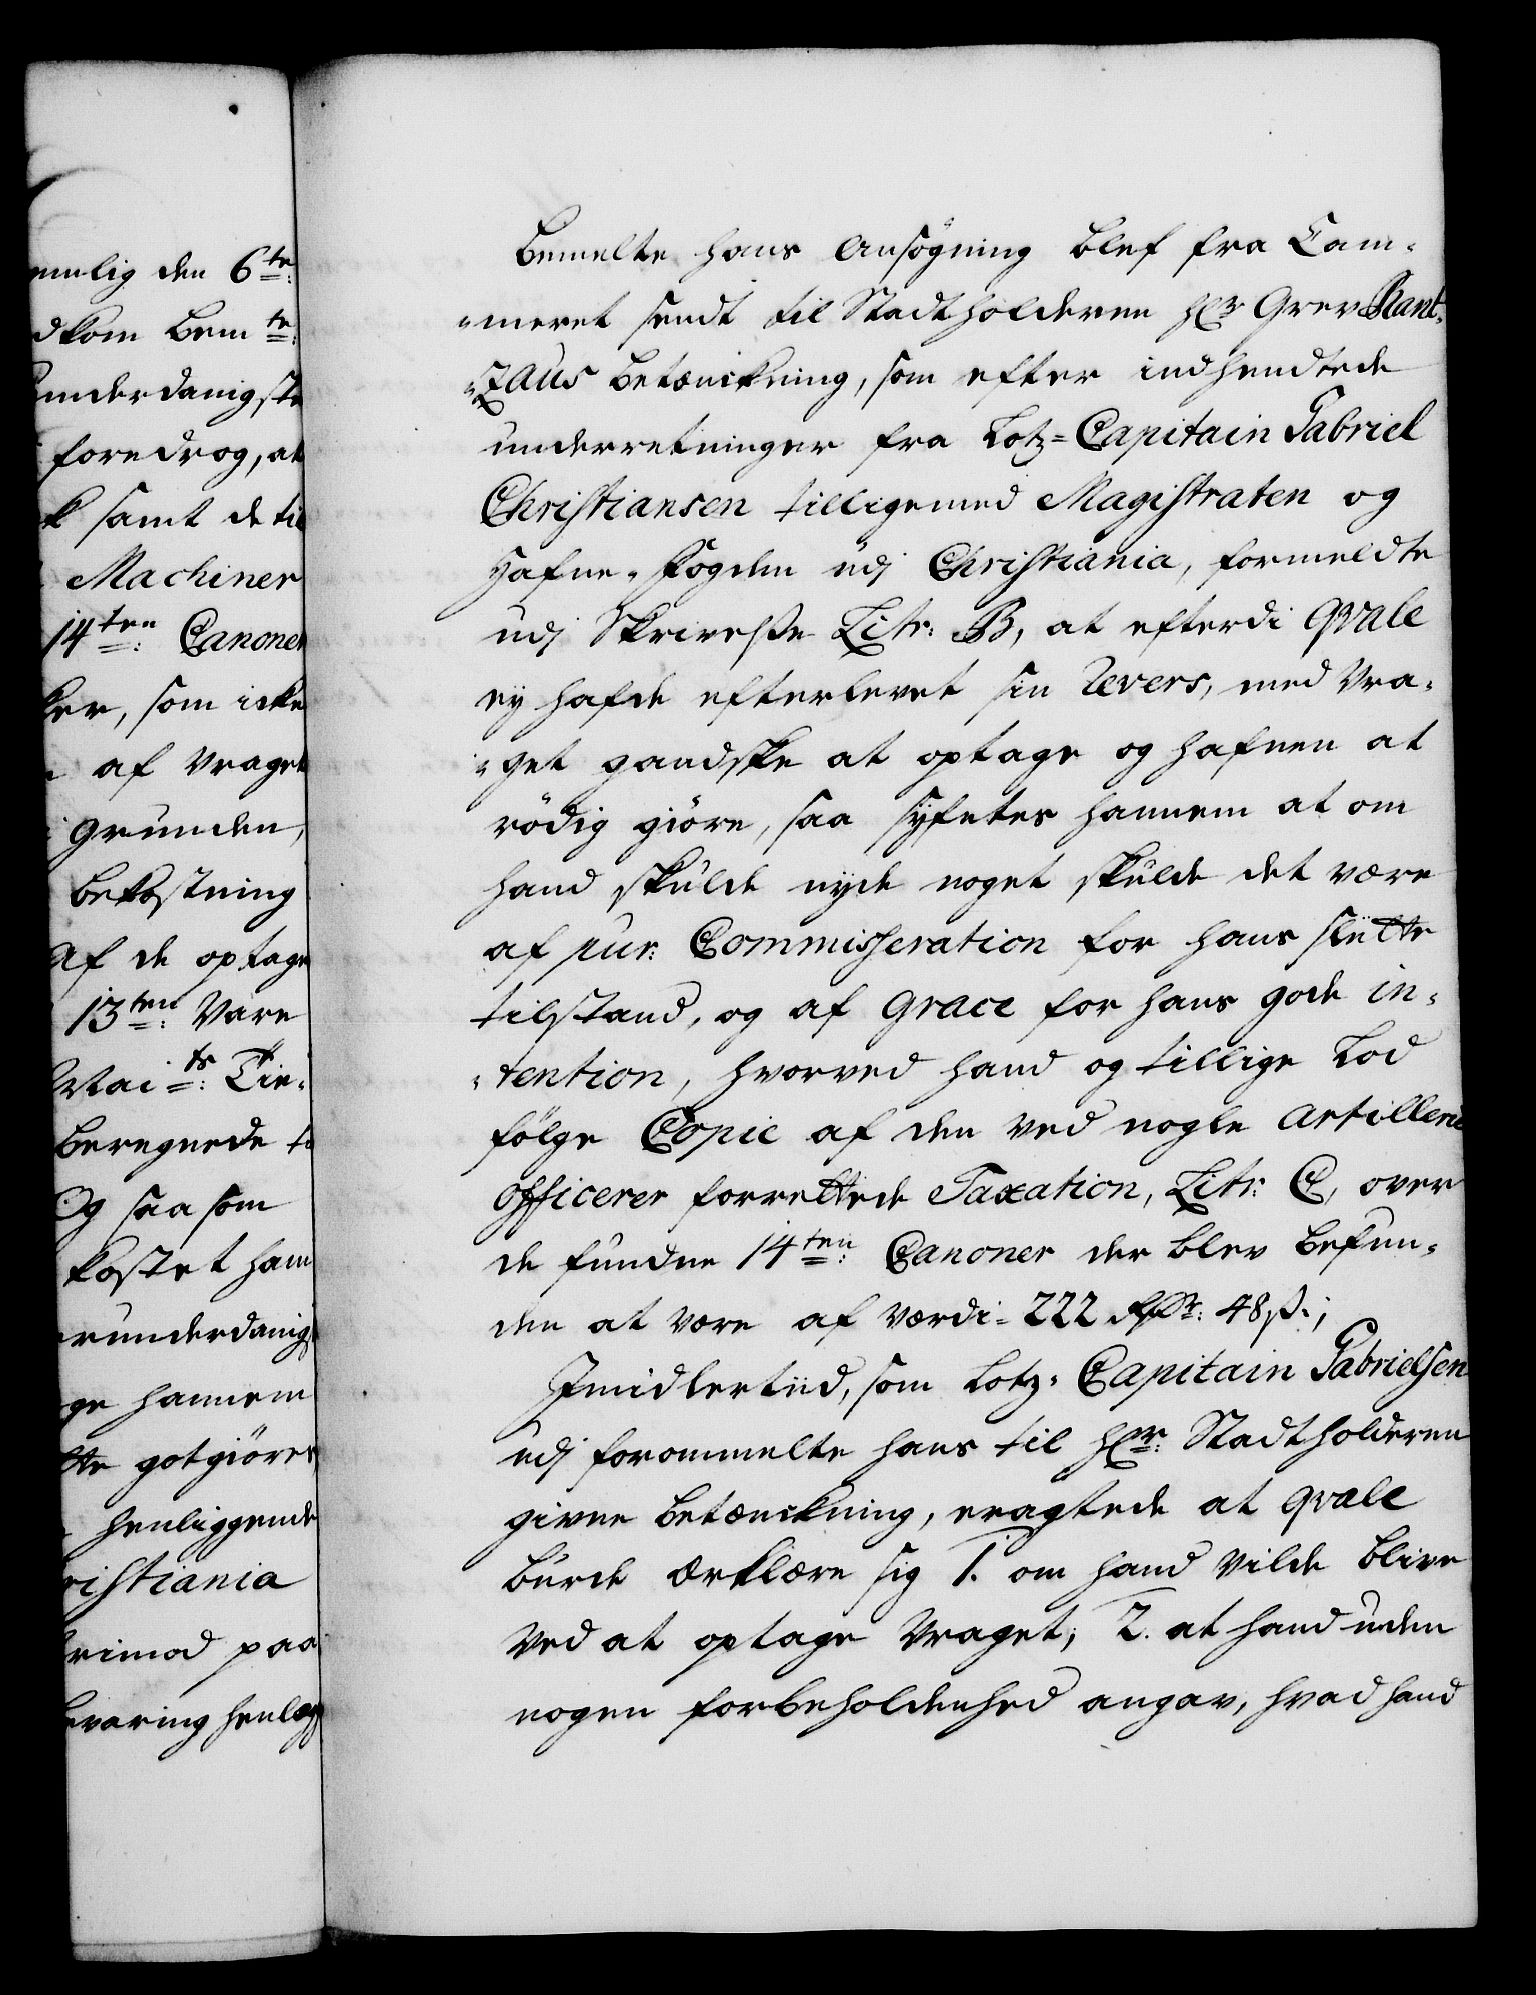 emlig den 6te:
dkom bemte:
underdanigste
foredrog, at
k samt de til
Machiner
14ten: Canoner
ker, som icke
af Vraget
grunden,
bekostning
Af de optage
13ten: Vare
Mai ts: Tie-
beregnede
Og saa som
kostet ham
runderdanig
ge hannem
tte gotgiöres
henliggende
ristiania
rimod paa
bevaring henlæg
bemelte hans Ansögning blef fra Cam-
-meret sendt til Stadtholderen Hr Grev Rant-
-Zaus betænckning, som efter indhendtede
underretninger fra Lotz-Capitain Gabriel
Christiansen tilligemed Magistraten og
Hafne-Fogden udj Christiania, formeldte
udj Skrivelse Litr: B, at efterdi Qvale
ey hafde efterlevet sin Revers, med Vra-
-get gandske at optage og Hafnen at
rödig giöre, saa syfntes hannem at om
hand skulde nyde noget skulde det være
af pur: Commisseration for hans slette
tilstand, og af Grace for hans gode in-
-tention, hvorved hand og tillige lod
fölge Copie af den ved nogle Artillerie
Officerer forrettede Taxation, Litr: C, over
de fundne 14ten: Canoner der blev befun-
den at være af værdi- 222 Rdr: 48 ß:;
Imidlertiid, som Lotz-Capitain Gabrielsen
udj forommelte hans til Hr: Stadtholderen
givne betænckning, eragtede at Qvale
burde ærklære sig 1. om hand vilde blive
ved at optage Vraget; 2. at hand uden
nogen forbeholdenhed angav, hvad hand